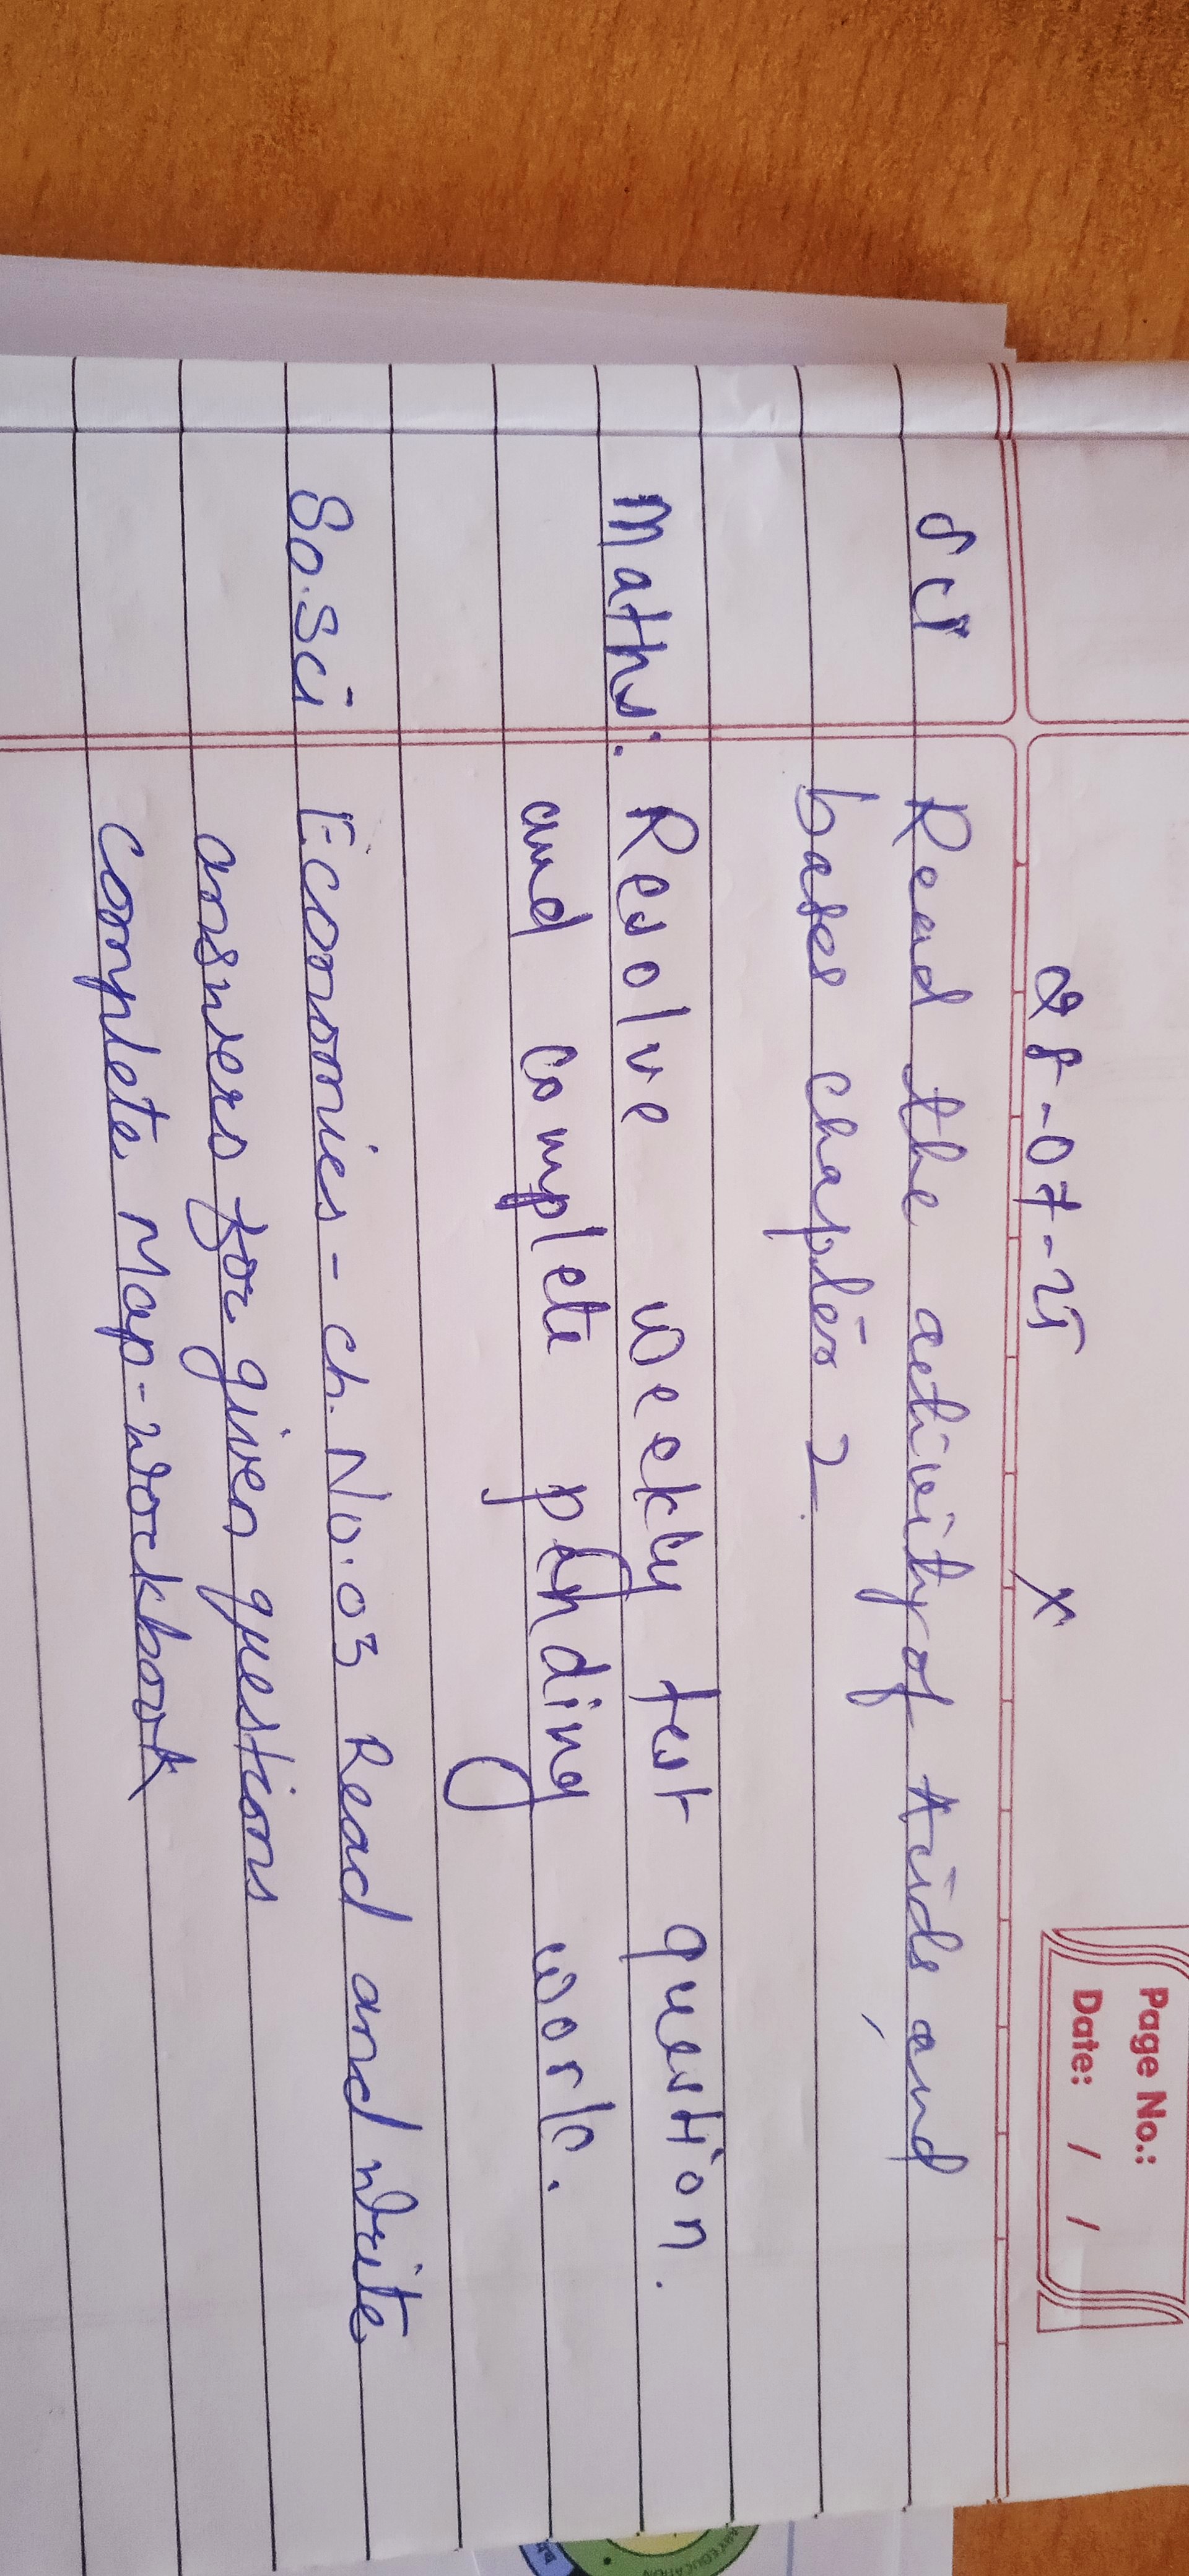 Page No.:
Date: / /
28-07-25 X
Sci Read the activity of Acids and
bases chapter 2.
Maths: Resolve weekly test question.
and complete pending work.
So.Sci Economics - ch. No. 03 Read and write
answers for given questions
complete Map-workbook